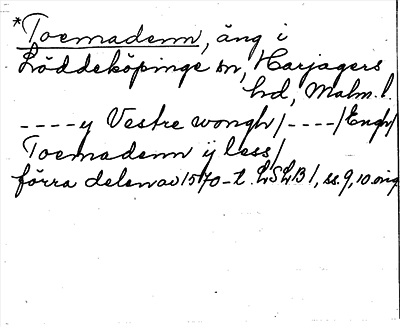 *Toemadenn, äng i
Löddeköpinge sn, Harjagers
hd, Malm. l.
----y Vestre wongh/----/Engh/
Toemadenn ÿ less/
förra delen av 1570-t. LSLB 1, ss. 9, 10 orig.